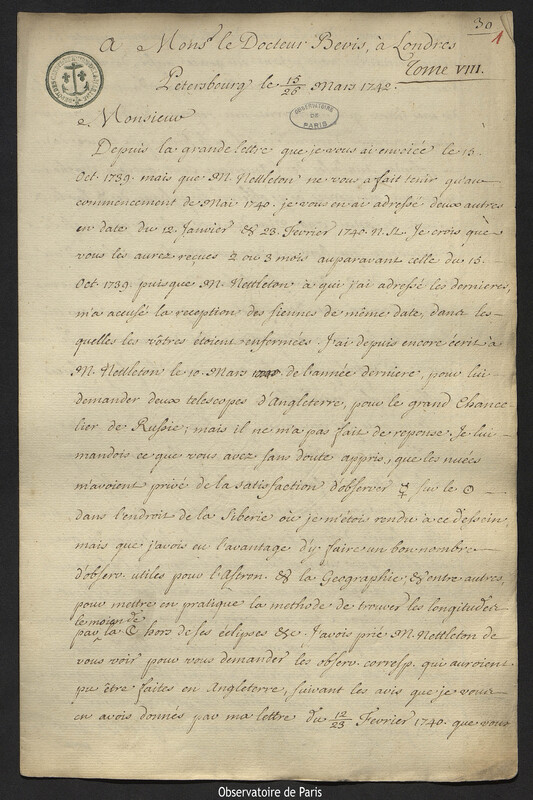 30
1
A Monsr. le Docteur Bevis, à Londres
Tome VIII.
Petersbourg le 15/26 Mars 1742.
OBSERVATOIRE
DE
PARIS
Monsieur
Depuis la grande lettre que je vous ai envoiée le 13.
Oct. 1739. mais que M. Nettleton ne vous a fait tenir qu'au
commencement de Mai 1740. je vous en ai adressé deux autres
en date du 12. Janvier & 23. Fevrier 1740. N. St. Je crois que
vous les aurez reçues 2 ou 3 mois auparavant celle du 13.
Oct. 1739. puisque M. Nettleton à qui j'ai adressé les dernieres,
m'a acusé la reception des siennes de même date, dans les-
quelles les vôtres étoient enfermées. J'ai depuis encore écrit à
M. Nettleton le 10. Mars de l'année derniere, pour lui
demander deux telescopes d'Angleterre, pour le grand Chance-
lier de Russie; mais il ne m'a pas fait de reponse. Je lui
mandois ce que vous avez sans doute appris, que les nuées
m'avoient privé de la satisfaction d'observer ☿ sur le ☉
dans l'endroit de la Siberie où je m'étoi rendu à ce dessein,
mais que j'avois eu l'avantage d'y faire un bon nombre
d'observ. utiles pour l'Astron. & la Geographie, & entre autres,
pour mettre en pratique la methode de trouver les longitudes
le moien de
par la ☾ hors de ses éclipses &c. J'avois prié M. Nettleton de
vous voir pour vous demander les observ. corresp. qui auroient
pu être faites en Angleterre, suivant les avis que je vous
en avois donnés par ma lettre du 12/23 Fevrier 1740. que vous
Observatoire de Paris